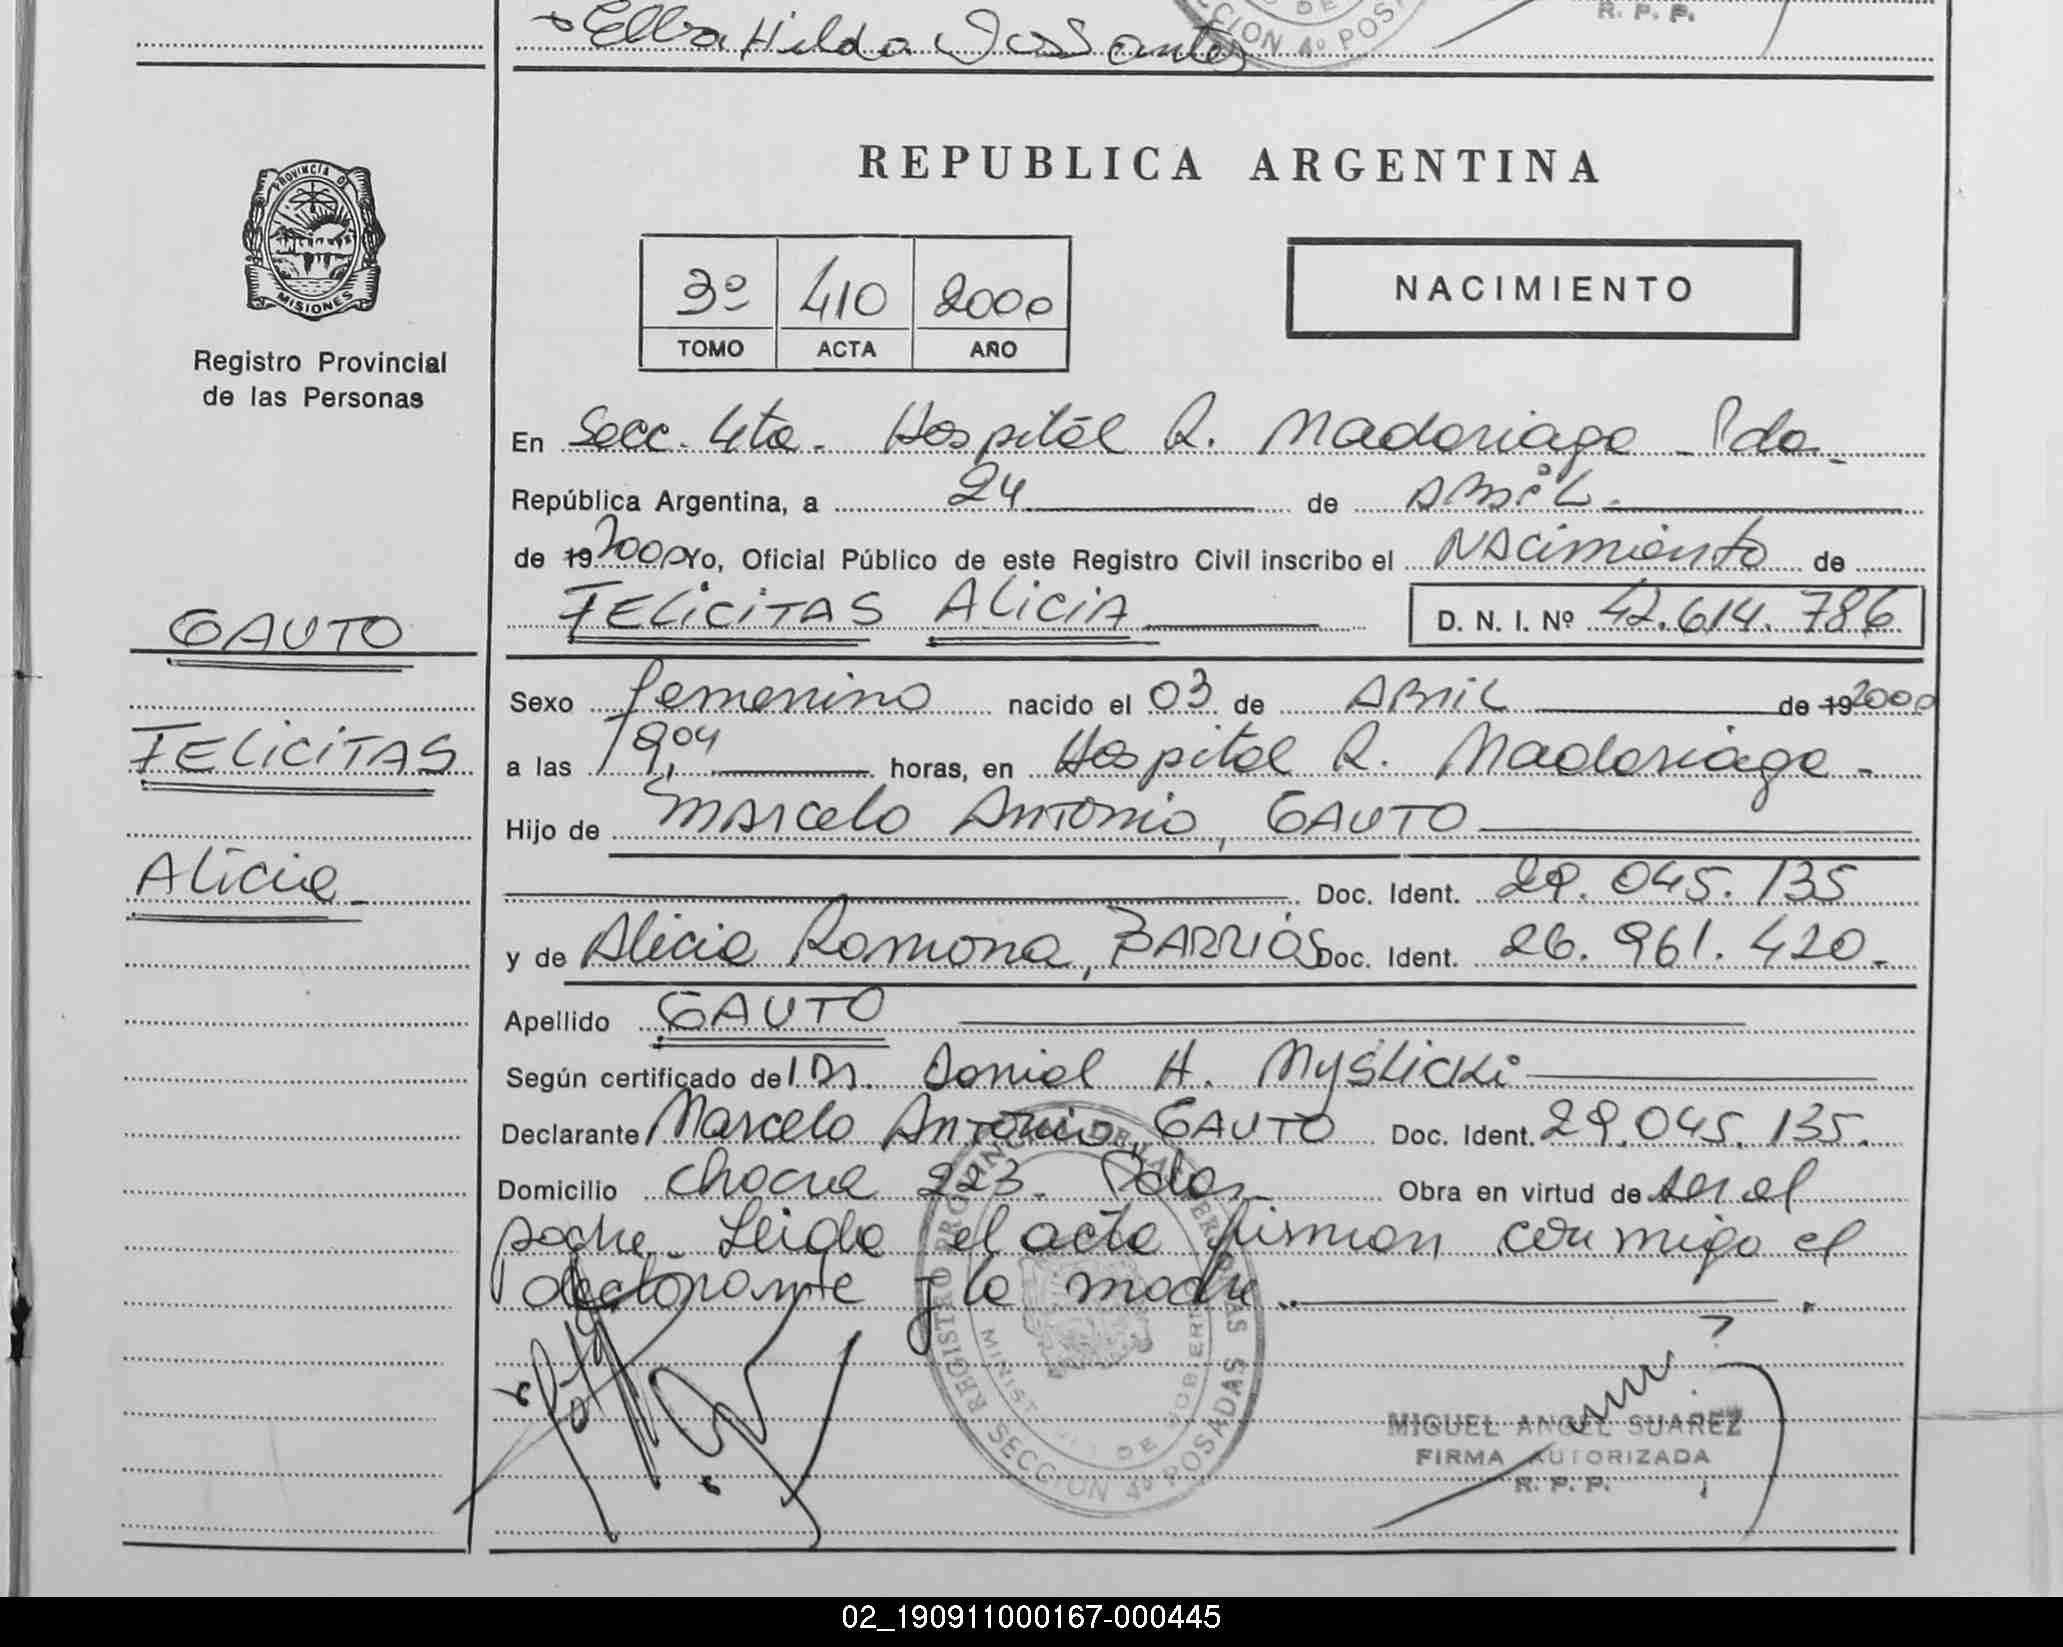 Elba Hilda Dos Santos
SECCION 4º POSADAS
R. P. P.
PROVINCIA DE
MISIONES
Registro Provincial
de las Personas
REPUBLICA ARGENTINA
3º 410 2000
TOMO ACTA AÑO
NACIMIENTO
En Secc. 4ta. Hospital R. Madariaga - Pdas.
República Argentina, a 24 de Abril.
de 19 2000 Yo, Oficial Público de este Registro Civil inscribo el Nacimiento de
FELICITAS ALICIA D. N. I. Nº 42.614.786
GAUTO
FELICITAS
Alicia
Sexo femenino nacido el 03 de Abril de 19 2000
a las 19,04 horas, en Hospital R. Madariaga -
Hijo de Marcelo Antonio, GAUTO
Doc. Ident. 29.045.135
y de Alicia Ramona, BARRIOS Doc. Ident. 26.961.420.
Apellido GAUTO
Según certificado del Dr. Daniel H. Myslicki
Declarante Marcelo Antonio, GAUTO Doc. Ident. 29.045.135.
Domicilio chacra 223. Pdas. Obra en virtud de ser el
padre. Leida el acta firman conmigo el
declarante y la madre.
REGISTRO PROVINCIAL DE LAS PERSONAS
MINISTERIO DE GOBIERNO
SECCION 4º POSADAS
MIGUEL ANGEL SUAREZ
FIRMA AUTORIZADA
R. P. P.
02_190911000167-000445